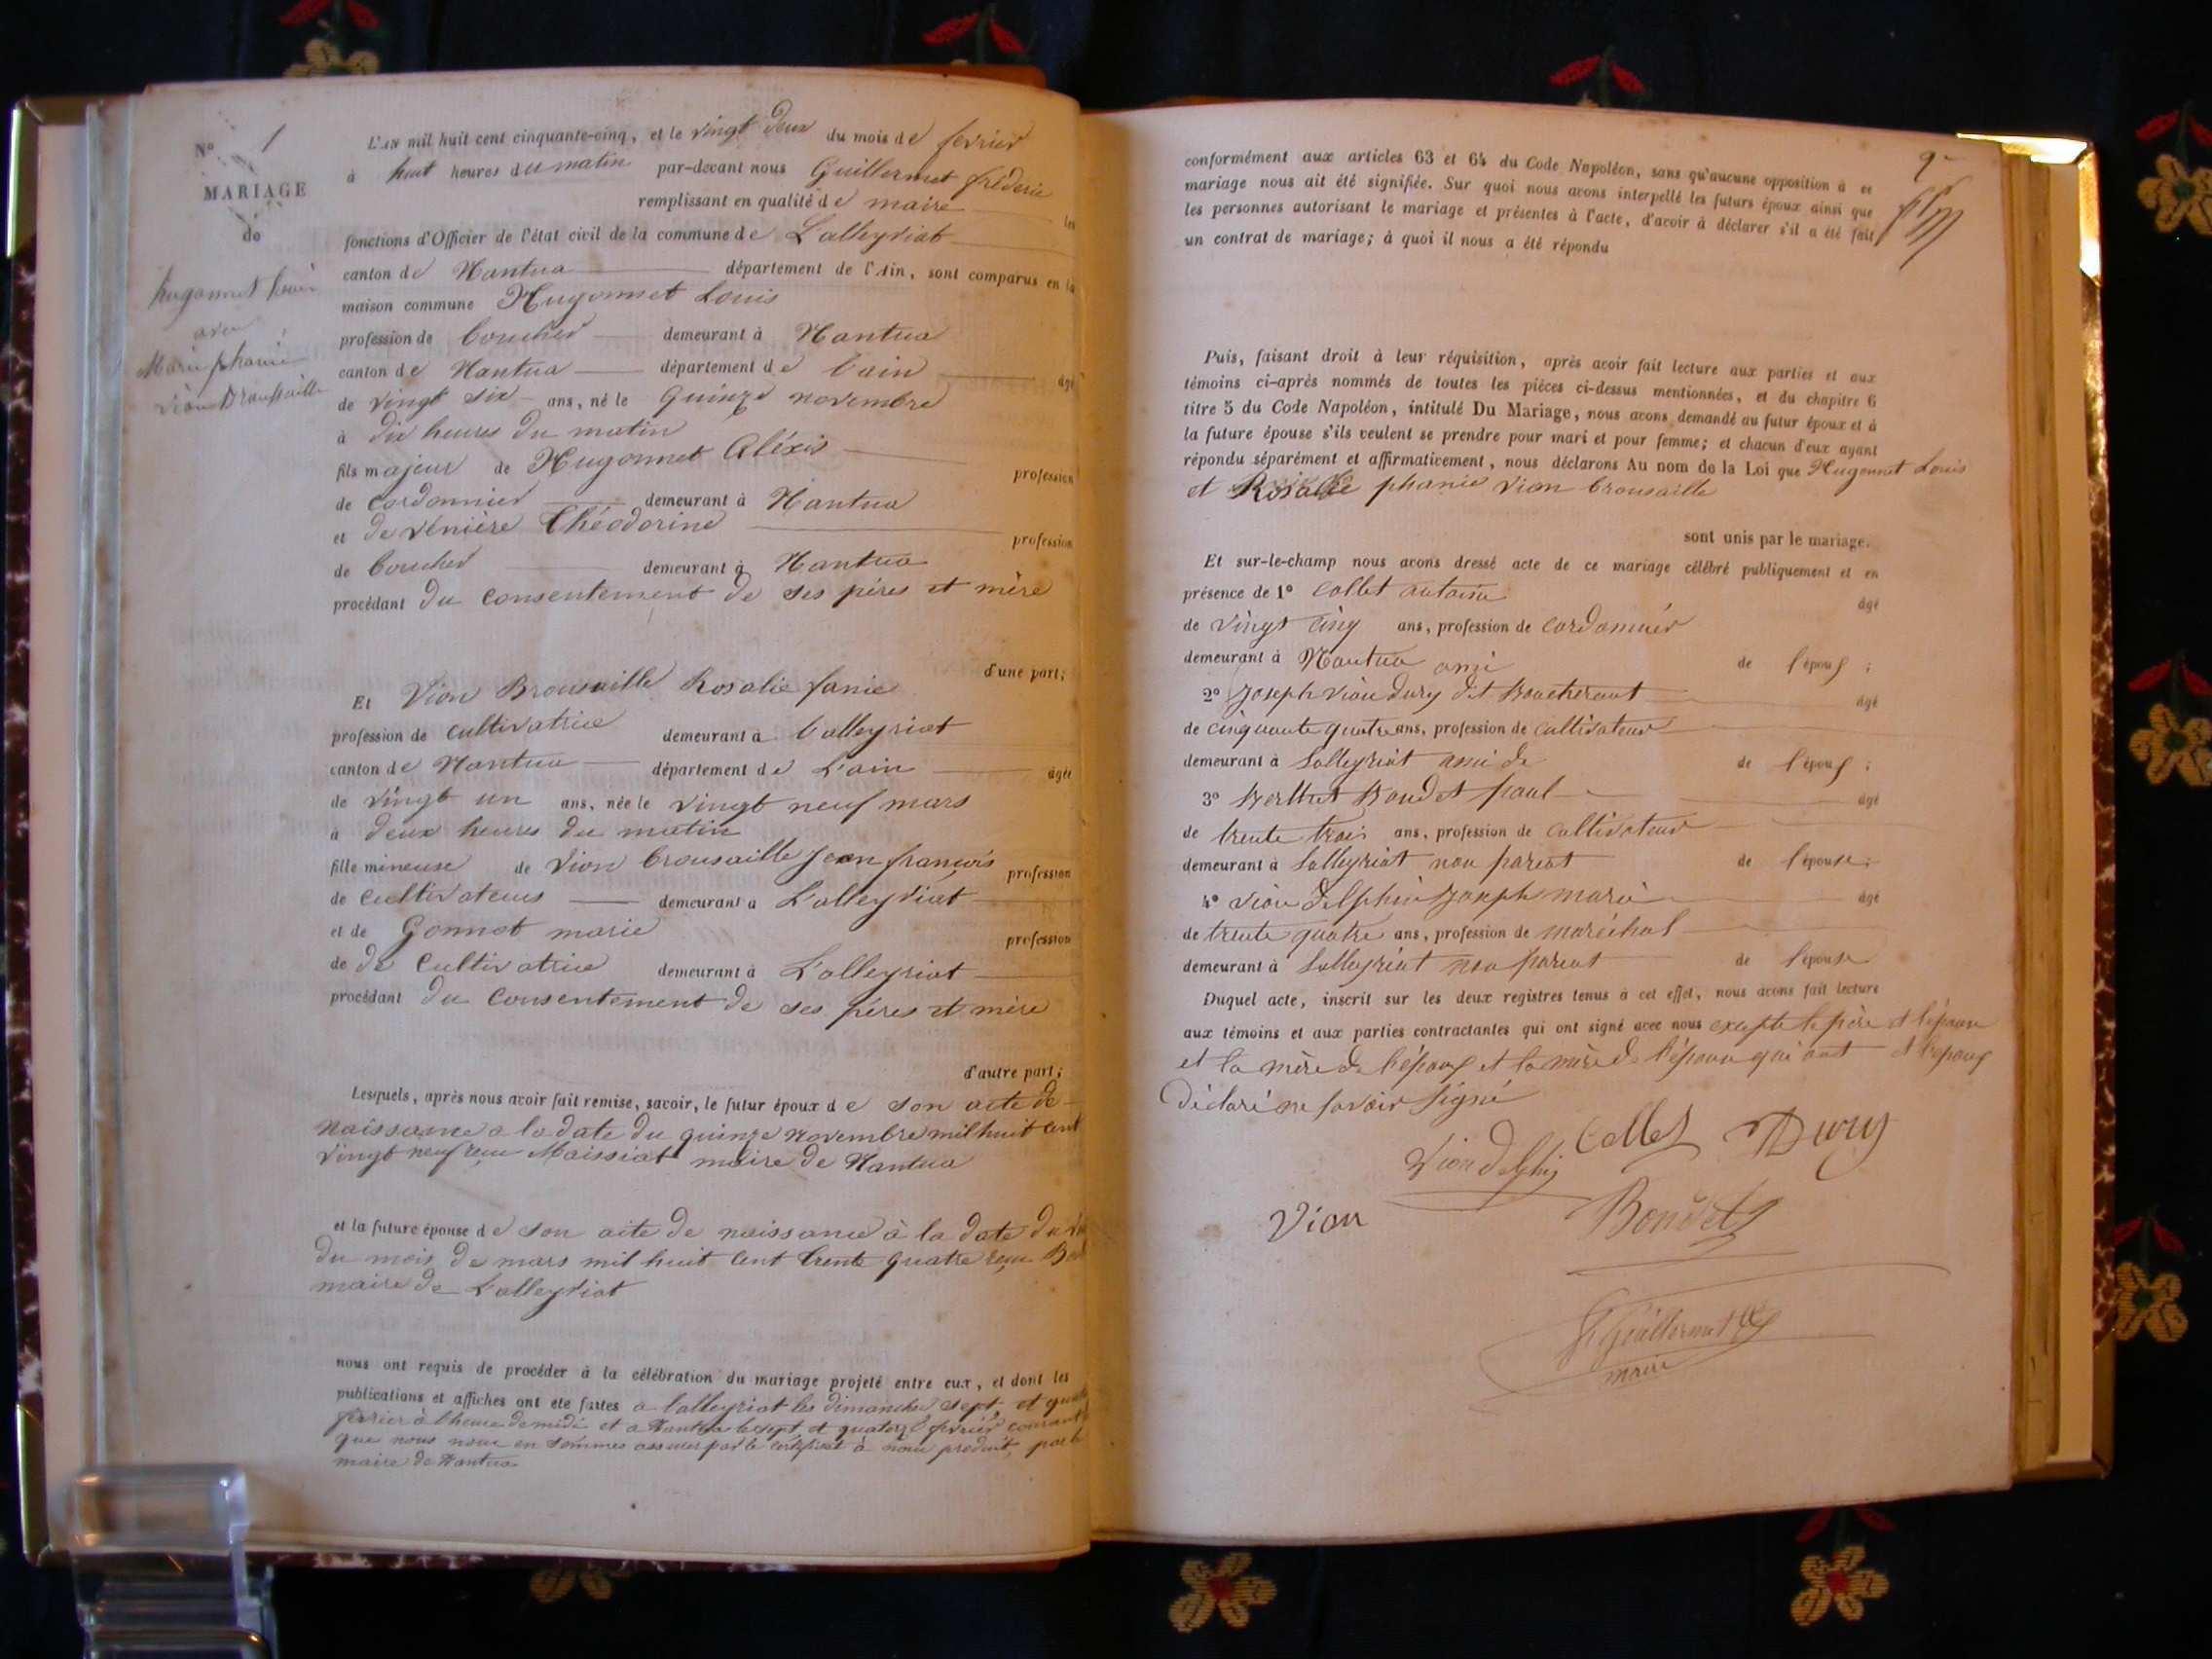 N° 1
MARIAGE
de
hugonnet louis
avec
Marie phanie
vion Broussaille
L'an mil huit cent cinquante-cinq, et le vingt deux du mois de fevrier
à huit heures du matin par-devant nous Guillermet fréderic
remplissant en qualité de maire les
fonctions d'Officier de l'état civil de la commune de Lalleyriat
canton de Nantua département de l'Ain, sont comparus en la
maison commune Hugonnet Louis
profession de boucher demeurant à Nantua
canton de Nantua département de l'ain âgé
de vingt six ans, né le Quinze novembre
à dix heures du matin
fils majeur de Hugonnet Aléxis profession
de cordonnier demeurant à Nantua
et de vénière Théodorine profession
de boucher demeurant à Nantua
procédant du consentement de ses péres et mère
d'une part;
Et Vion Brousaille Rosalie fanie
profession de cultivatrice demeurant à Lalleyriat
canton de Nantua département de L'ain âgée
de vingt un ans, née le vingt neuf mars
à deux heures du matin
fille mineuse de Vion brousaille jean françois profession
de cultivateurs demeurant à L'alleyriat
et de Gonnet marie profession
de de cultivatrice demeurant à L'alleyriat
procédant du consentement de ses péres et mère
d'autre part;
Lesquels, après nous avoir fait remise, savoir, le futur époux de son acte de
naissance a la date du quinze novembre mil huit cent
vingt neuf reçu Maissiat maire de Nantua
et la future épouse de son acte de naissance à la date du
du mois de mars mil huit cent trente quatre reçu
maire de L'alleyriat
nous ont requis de procéder à la célébration du mariage projeté entre eux, et dont les
publications et affiches ont été faites a lalleyriat les dimanche sept et
fevrier à l'heure de midi et a Nantua le sept et quatorze fevrier courant
que nous nous en sommes assurer par le certificat à nous produit par le
maire de Nantua
2
conformément aux articles 63 et 64 du Code Napoléon, sans qu'aucune opposition à ce
mariage nous ait été signifiée. Sur quoi nous avons interpellé les futurs époux ainsi que
les personnes autorisant le mariage et présentes à l'acte, d'avoir à déclarer s'il a été fait
un contrat de mariage; à quoi il nous a été répondu
Puis, faisant droit à leur réquisition, après avoir fait lecture aux parties et aux
témoins ci-après nommés de toutes les pièces ci-dessus mentionnées, et du chapitre 6
titre 5 du Code Napoléon, intitulé Du Mariage, nous avons demandé au futur époux et à
la future épouse s'ils veulent se prendre pour mari et pour femme; et chacun d'eux ayant
répondu séparément et affirmativement, nous déclarons Au nom de la Loi que Hugonnet Louis
et Rosalie phanie vion brousaille
sont unis par le mariage.
Et sur-le-champ nous avons dressé acte de ce mariage célébré publiquement et en
présence de 1° Collet antoine âgé
de vingt cinq ans, profession de cordonnier
demeurant à Nantua ami de l'époux;
2° Joseph vion dury dit Boucherant âgé
de cinquante quatre ans, profession de cultivateur
demeurant à Lalleyriat ami de de l'époux;
3° Berthet Bondet paul âgé
de trente trois ans, profession de cultivateur
demeurant à Lalleyriat non parent de l'épouse;
4° vion Delphin Joseph marie âgé
de trente quatre ans, profession de maréchal
demeurant à Lalleyriat non parent de l'épouse
Duquel acte, inscrit sur les deux registres tenus à cet effet, nous avons fait lecture
aux témoins et aux parties contractantes qui ont signé avec nous excepte le père et l'épouse
et la mère de l'époux et la mère de l'épouse qui ont et l'époux
déclaré ne savoir signé
Vion Delphin Collet Dury
Vion Bondet
Guillermet
maire